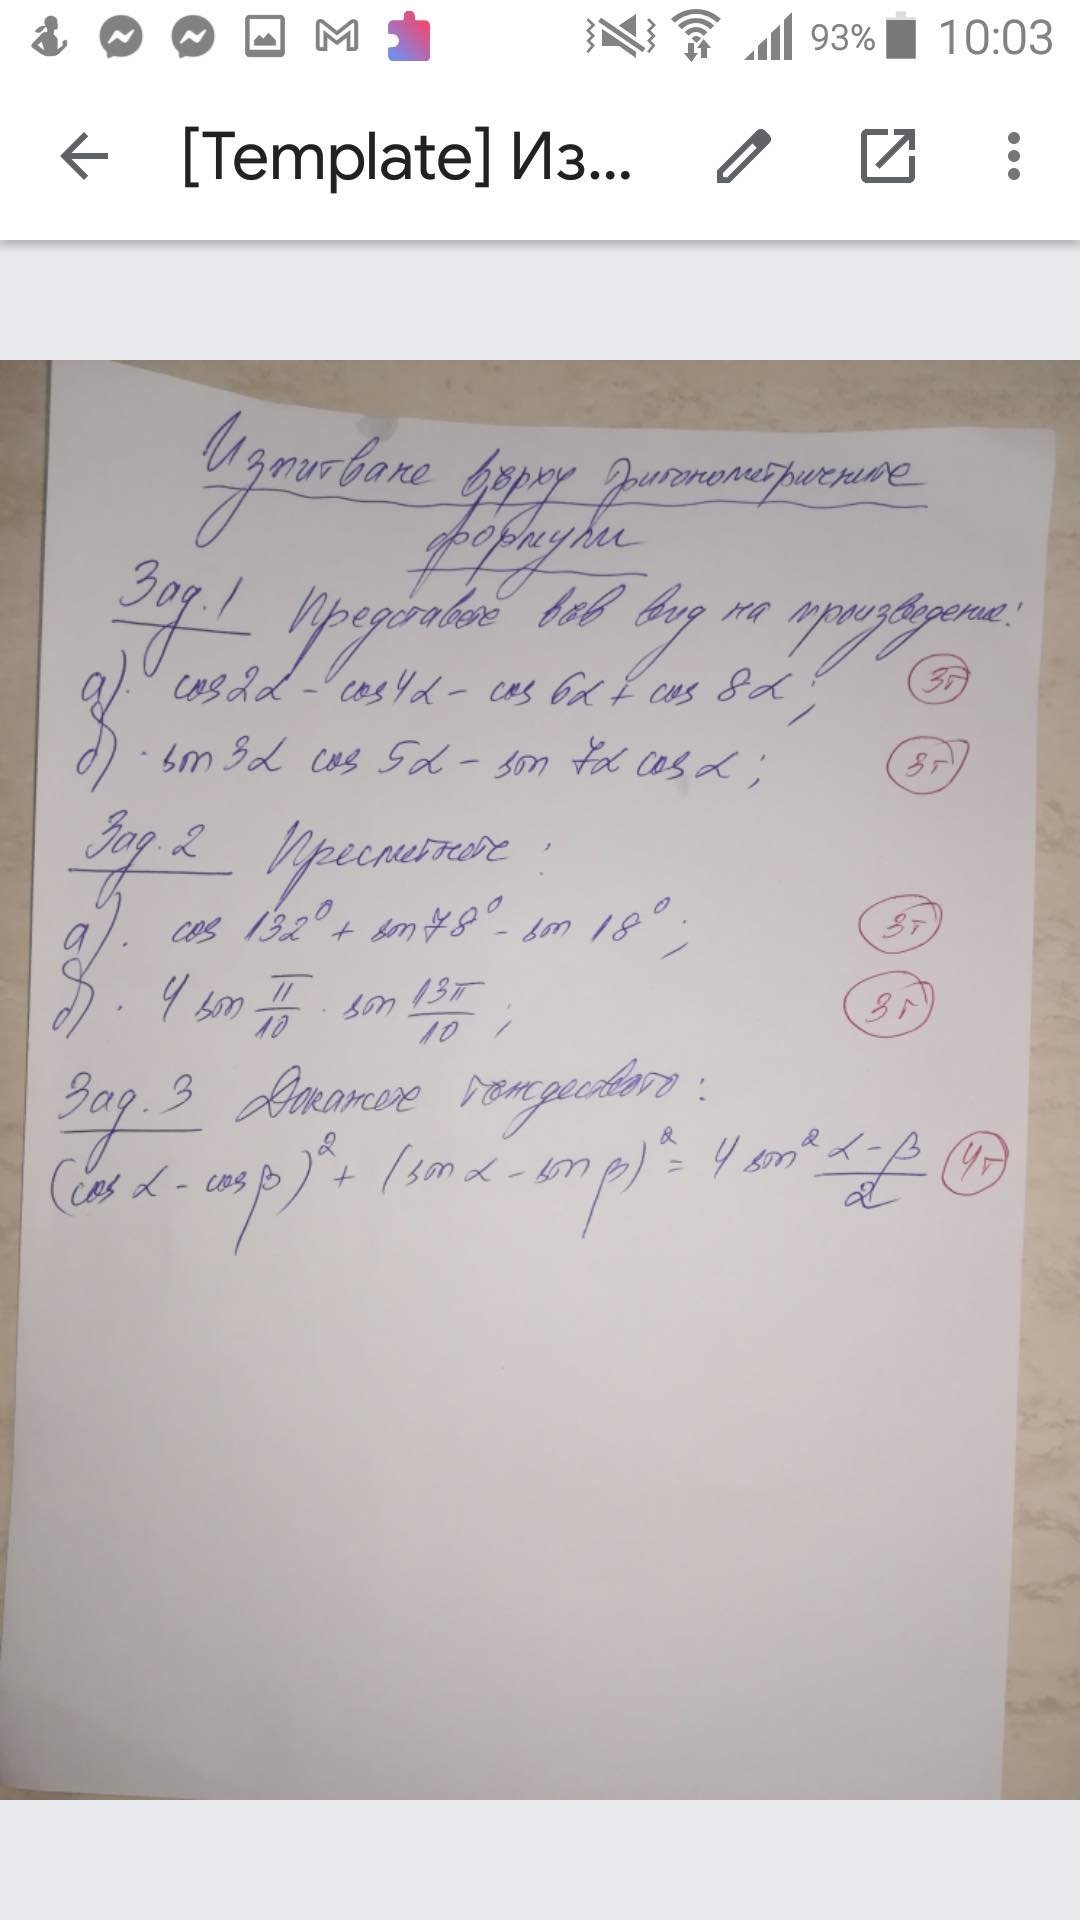 93% 10:03
[Template] Из...
Изпитване върху тригонометричните
формули
Зад.1 Представете във вид на произведение:
а). cos2α - cos4α - cos 6α + cos 8α; 3т
б). sin 3α cos 5α - sin 7α cos α; 3т
Зад.2 Пресметнете:
а). cos 132° + sin 78° - sin 18°; 3т
б). 4 sin π/10 . sin 13π/10; 3т
Зад.3 Докажете тъждеството:
(cos α - cos β)² + (sin α - sin β)² = 4 sin² α-β/2 4т